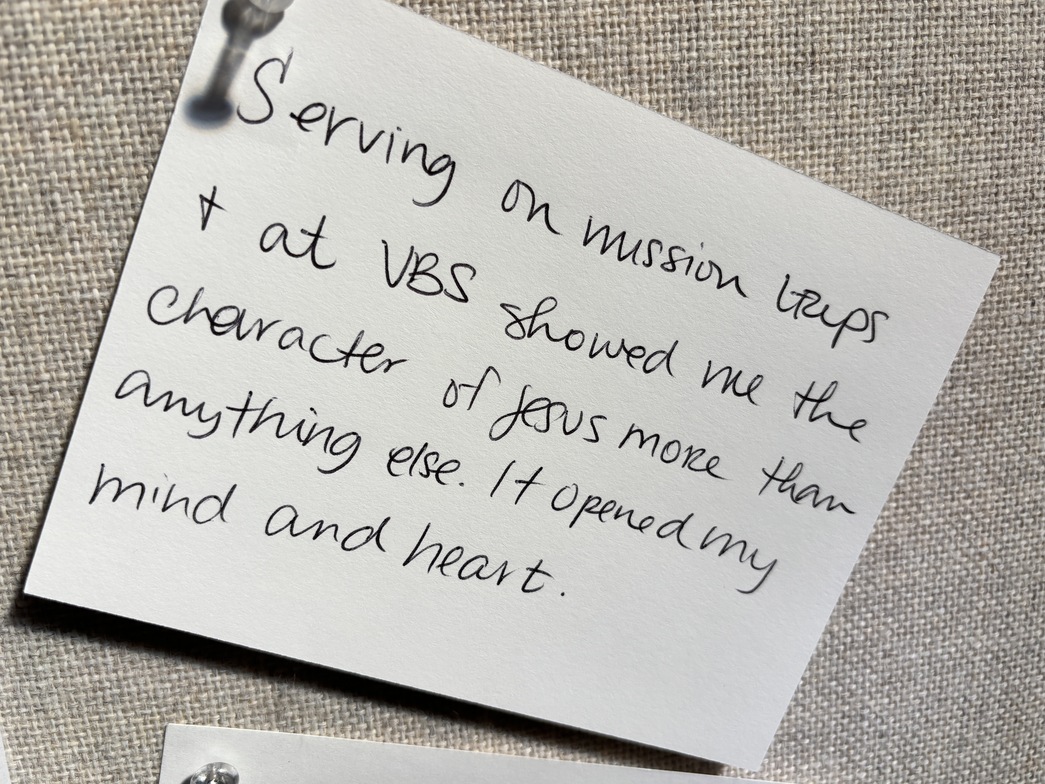 Serving on mission trips
+ at VBS showed me the
character of Jesus more than
anything else. It opened my
mind and heart.